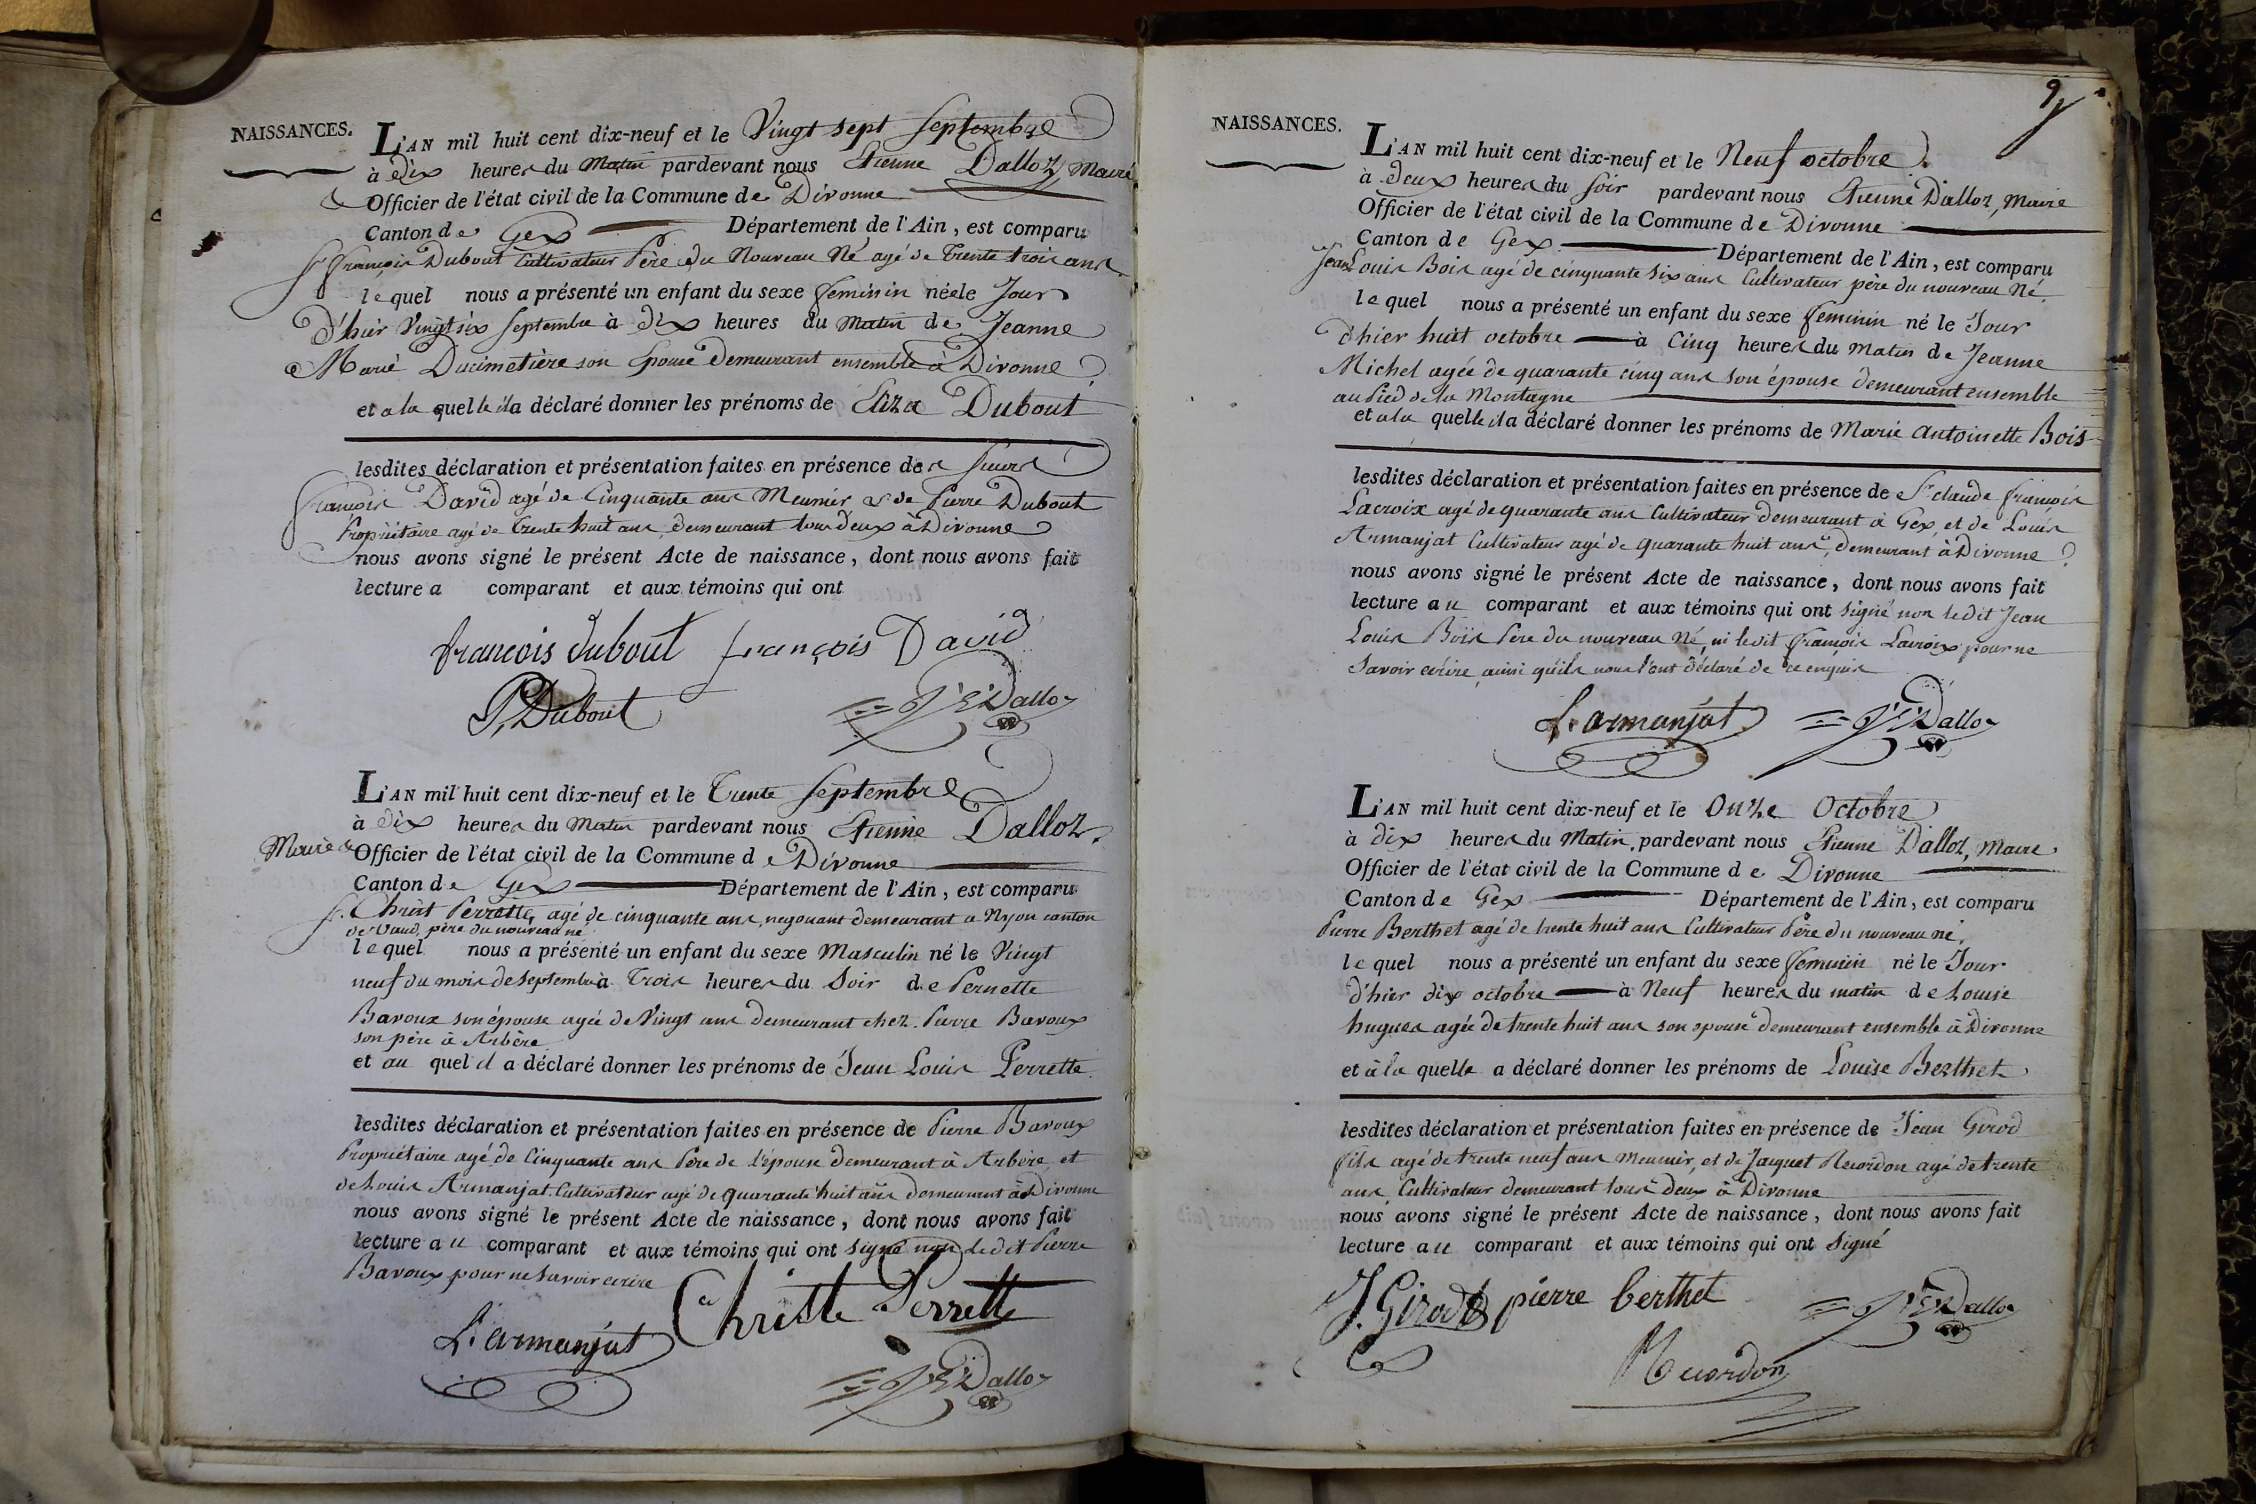 NAISSANCES.
L'AN mil huit cent dix-neuf et le Vingt sept Septembre
à Dix heures du Matin pardevant nous Etienne Dalloz, Maire
& Officier de l'état civil de la Commune de Divonne
Canton de Gex Département de l'Ain, est comparu
Sr. françois Dubout Cultivateur Père du Nouveau Né agé de Trente trois ans
lequel nous a présenté un enfant du sexe feminin née le Jour
d'hier Vingt six Septembre à dix heures du Matin de Jeanne
Marie Ducimetière son Epouse demeurant ensemble à Divonne
et a la quelle il a déclaré donner les prénoms de Eliza Dubout
lesdites déclaration et présentation faites en présence des Sieurs
françois David agé de Cinquante ans Meunier & de Pierre Dubout
Propriétaire agé de Trente huit ans, demeurant tous deux à Divonne
nous avons signé le présent Acte de naissance, dont nous avons fait
lecture a comparant et aux témoins qui ont
francois dubout françois David
P, Dubout J. E. Dalloz
L'AN mil huit cent dix-neuf et le Trente Septembre
à dix heures du Matin pardevant nous Etienne Dalloz,
Maire & Officier de l'état civil de la Commune de Divonne
Canton de Gex Département de l'Ain, est comparu
Sr. Christ Perrette, agé de cinquante ans, negociant demeurant a Nyon canton
de Vaud, père du nouveau né
lequel nous a présenté un enfant du sexe Masculin né le Vingt
neuf du mois de Septembre à Trois heures du Soir de Pernette
Bavoux son épouse agée de Vingt ans demeurant chez Pierre Bavoux
son père à Arbère
et au quel il a déclaré donner les prénoms de Jean Louis Perrette
lesdites déclaration et présentation faites en présence de Pierre Bavoux
Propriétaire agé de Cinquante ans Père de l'épouse demeurant à Arbère, et
de Louis Armanjat Cultivateur agé de quarante huit ans demeurant à Divonne
nous avons signé le présent Acte de naissance, dont nous avons fait
lecture au comparant et aux témoins qui ont signé non ledit Pierre
Bavoux pour ne savoir ecrire
Christe Perrette
L. armanjat
J. E. Dalloz
9
NAISSANCES.
L'AN mil huit cent dix-neuf et le Neuf octobre
à deux heures du soir pardevant nous Etienne Dalloz, Maire
Officier de l'état civil de la Commune de Divonne
Canton de Gex Département de l'Ain, est comparu
Jean Louis Bois agé de cinquante six ans Cultivateur père du nouveau Né
lequel nous a présenté un enfant du sexe feminin né le Jour
d'hier huit octobre à Cinq heures du Matin de Jeanne
Michel agée de quarante cinq ans son épouse demeurant ensemble
au Pied de la Montagne
et a la quelle il a déclaré donner les prénoms de Marie Antoinette Bois
lesdites déclaration et présentation faites en présence de Sr. claude françois
Lacroix agé de quarante ans Cultivateur demeurant à Gex, et de Louis
Armanjat Cultivateur agé de quarante huit ans, demeurant à Divonne
nous avons signé le présent Acte de naissance, dont nous avons fait
lecture au comparant et aux témoins qui ont signé non ledit Jean
Louis Bois Père du nouveau Né, ni ledit françois Lacroix pour ne
savoir ecrire, ainsi qu'ils nous l'ont déclaré de ce enquis
L. armanjat J. E. Dalloz
L'AN mil huit cent dix-neuf et le Onze Octobre
à dix heures du Matin, pardevant nous Etienne Dalloz, Maire
Officier de l'état civil de la Commune de Divonne
Canton de Gex Département de l'Ain, est comparu
Pierre Berthet agé de trente huit ans Cultivateur Père du nouveau né,
lequel nous a présenté un enfant du sexe feminin né le Jour
d'hier dix octobre à Neuf heures du matin de Louise
hugues agée de trente huit ans son epouse demeurant ensemble à Divonne
et à la quelle a déclaré donner les prénoms de Louise Berthet
lesdites déclaration et présentation faites en présence de Jean Girod
fils agé de trente neuf ans Meunier, et de Jaquet Recordon agé de trente
ans, Cultivateur demeurant tous deux à Divonne
nous avons signé le présent Acte de naissance, dont nous avons fait
lecture au comparant et aux témoins qui ont signé
J. Girod pierre berthet J. E. Dalloz
Recordon